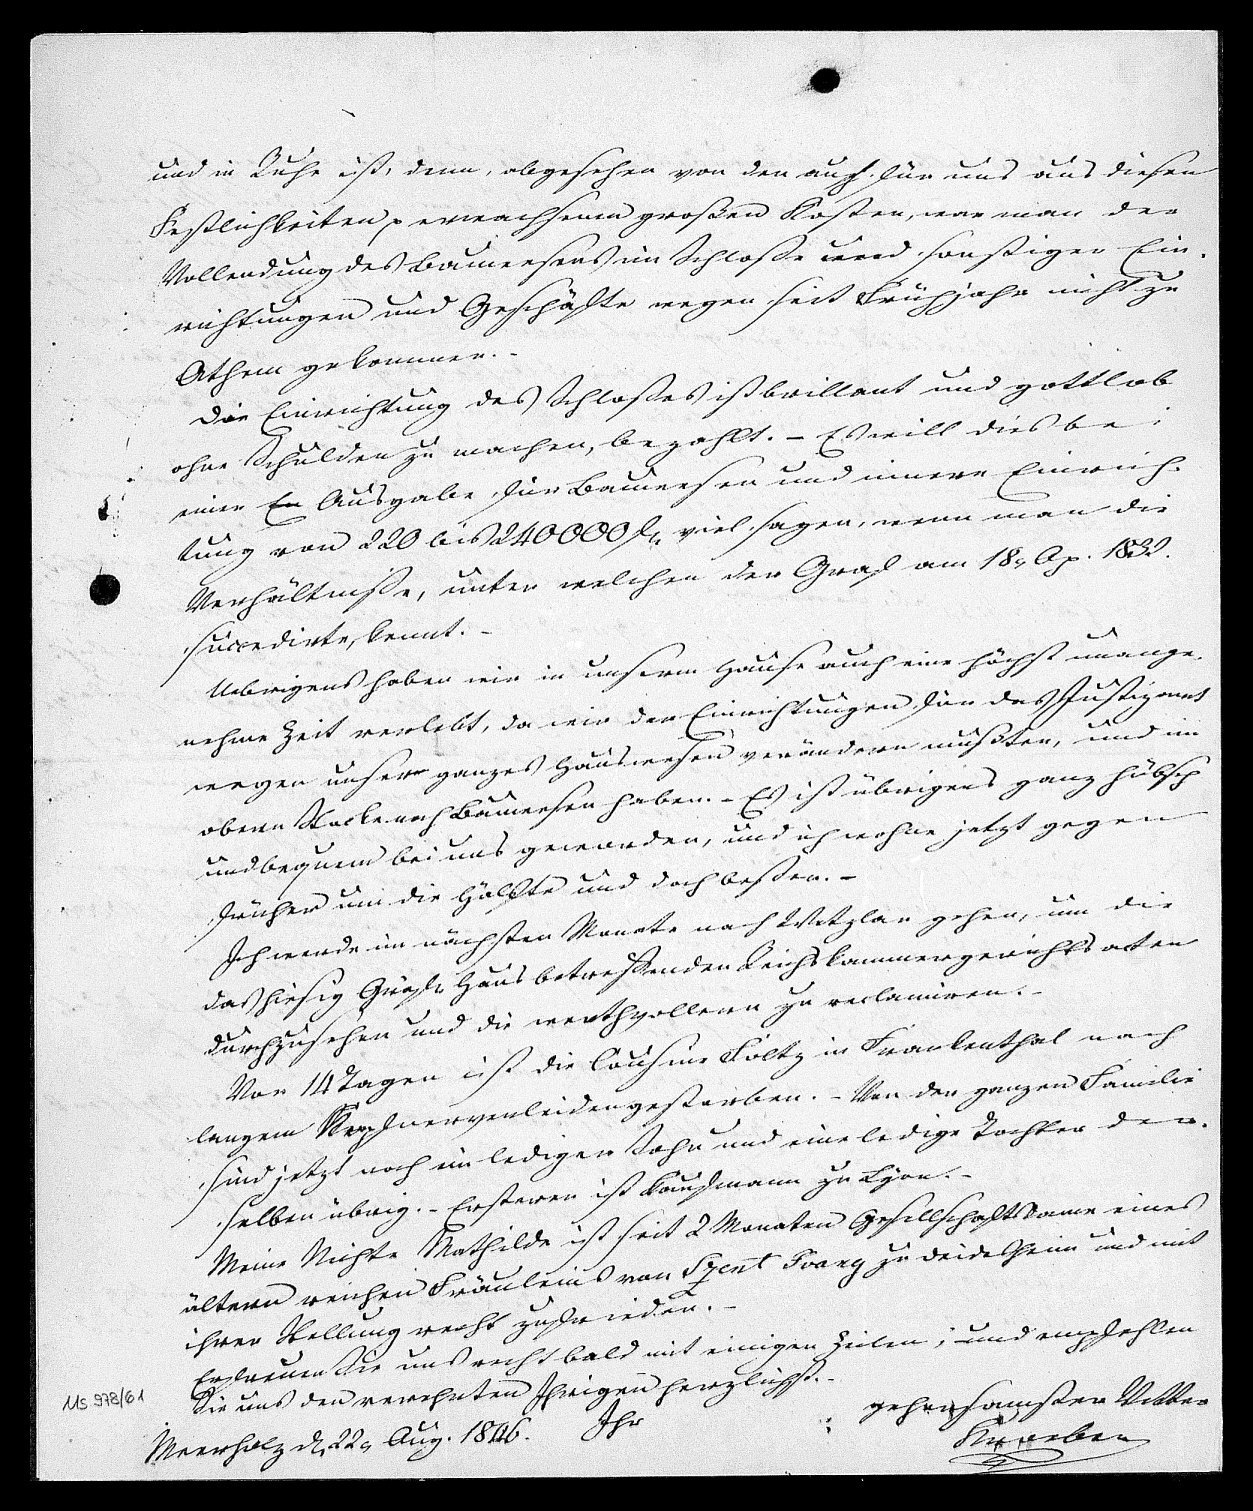 und in Ruhe ist, denn, abgesehen von den auch für uns aus diesen
Festlichkeiten p erwachsenen großen Kosten, war man der
Vollendung des Bauwesens im Schlosse und sonstiger Ein-
richtungen und Geschäfte wegen seit Frühjahr nicht zu
Athem gekommen. -
Die Einrichtung des Schlosses ist brillant und gottlob
ohne Schulden zu machen, bezahlt. - Es will dies bei
einer En Ausgabe für Bauwesen und innere Einrich-
tung von 220 bis 240000 f. viel sagen, wenn man die
Verhältnisse, unter welchen der Graf am 18. Ap. 1832.
succedirte, kennt. -
Uebrigens haben wir in unserm Hause auch eine höchst unange-
nehme Zeit verlebt, da wir der Einrichtungen für das Justizamt
wegen unser ganzes Hauswesen verändern mußten, und im
obern Stocke noch Bauwesen haben. - Es ist übrigens ganz hübsch
und bequem bei uns geworden, und ich wohne jetzt gegen
früher um die Hälfte und doch besser. -
Ich werde im nächsten Monate nach Wetzlar gehen, um die
das hiesig Gräfl. Haus betreffenden Reichskammergerichtsacten
durchzusehen und die werthvollern zu reclamiren. -
Vor 14 Tagen ist die Cousine Foltz in Frankenthal nach
langem Kopfnervenleiden gestorben. - Von der ganzen Familie
sind jetzt noch ein lediger Sohn und eine ledige Tochter der-
selben übrig. - Ersterer ist Kaufmann zu Lyon. -
Meine Nichte Mathilde ist seit 2 Monaten Gesellschaftsdame eines
ältern reichen Fräuleins von Szent Ivany zu Deidesheim und mit
ihrer Stellung recht zufrieden. -
Erfreuen Sie uns recht bald mit einigen Zeilen; und empfehlen
Sie uns den verehrten Ihrigen herzlichst. -
Ihr gehorsamster Vetter
Meerholz d. 22. Aug. 1846.
Ms 978/61